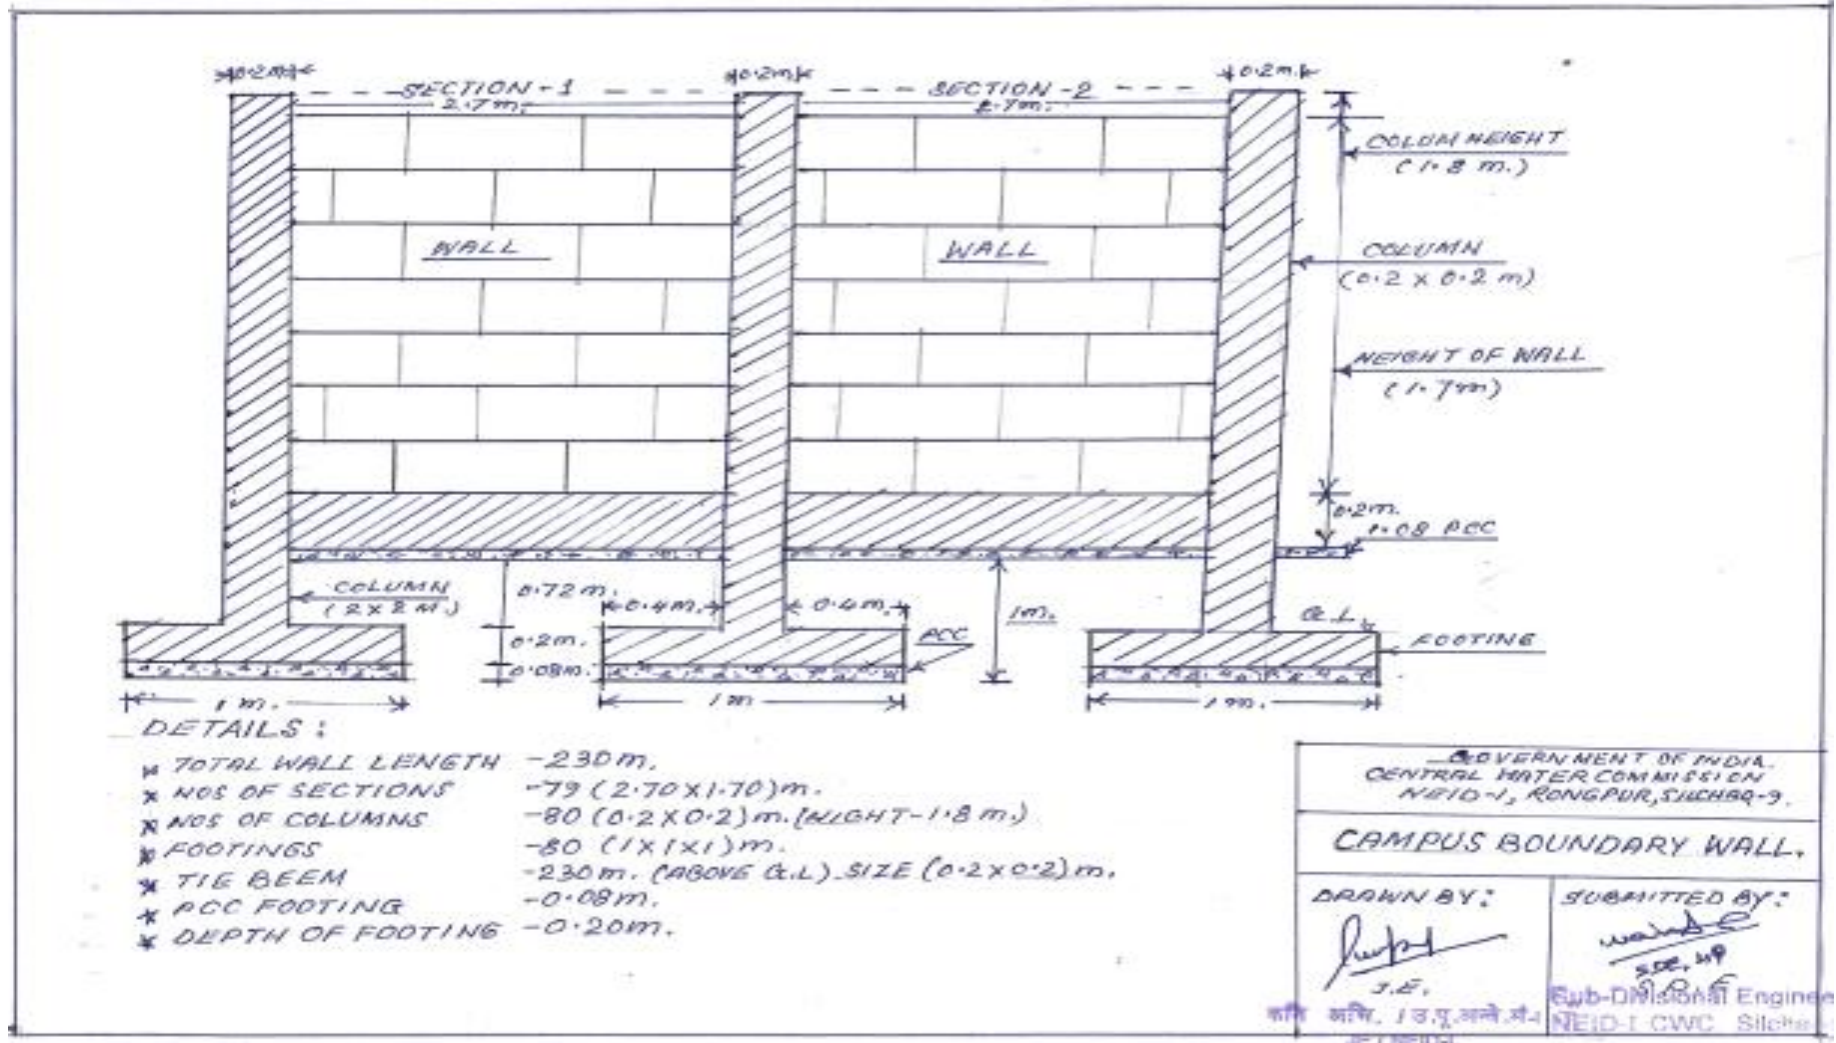 0.2m
SECTION-1
2.7m.
0.2m
SECTION-2
2.7m.
0.2m.
COLUM HEIGHT
(1.8 m.)
WALL
WALL
COLUMN
(0.2 X 0.2 m)
HEIGHT OF WALL
(1.7m)
0.2m.
PCC
COLUMN
(2 X 2 M.)
0.72m.
0.4m.
0.4m.
1m.
G.L.
0.2m.
PCC
FOOTING
0.08m.
1 m.
1 m
1 m.
DETAILS :
* TOTAL WALL LENGTH -230m.
* NOS OF SECTIONS -79 (2.70X1.70)m.
* NOS OF COLUMNS -80 (0.2X0.2)m. (HIGHT-1.8m.)
* FOOTINGS -80 (1X1X1)m.
* TIE BEEM -230m. (ABOVE G.L) SIZE (0.2X0.2)m.
* PCC FOOTING -0.08m.
* DEPTH OF FOOTING -0.20m.
GOVERNMENT OF INDIA
CENTRAL WATER COMMISSION
NEID-1, RONGPUR, SILCHAR-9.
CAMPUS BOUNDARY WALL.
DRAWN BY:
J.E.
SUBMITTED BY:
Sub-Divisional
NEID-I CWC